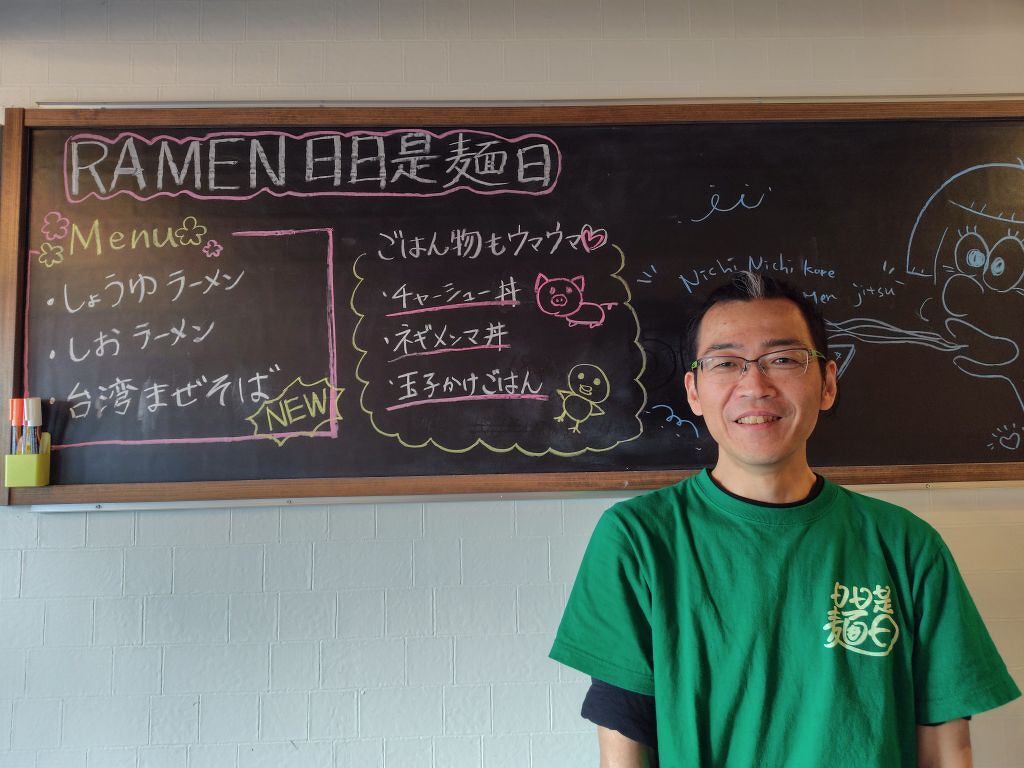 RAMEN 日日是麺日
Menu
・しょうゆ ラーメン
・しお ラーメン
・台湾まぜそば
NEW
ごはん物もウマウマ
・チャーシュー丼
・ネギメンマ丼
・玉子かけごはん
Nichi Nichi kore
men jitsu
日日是
麺日